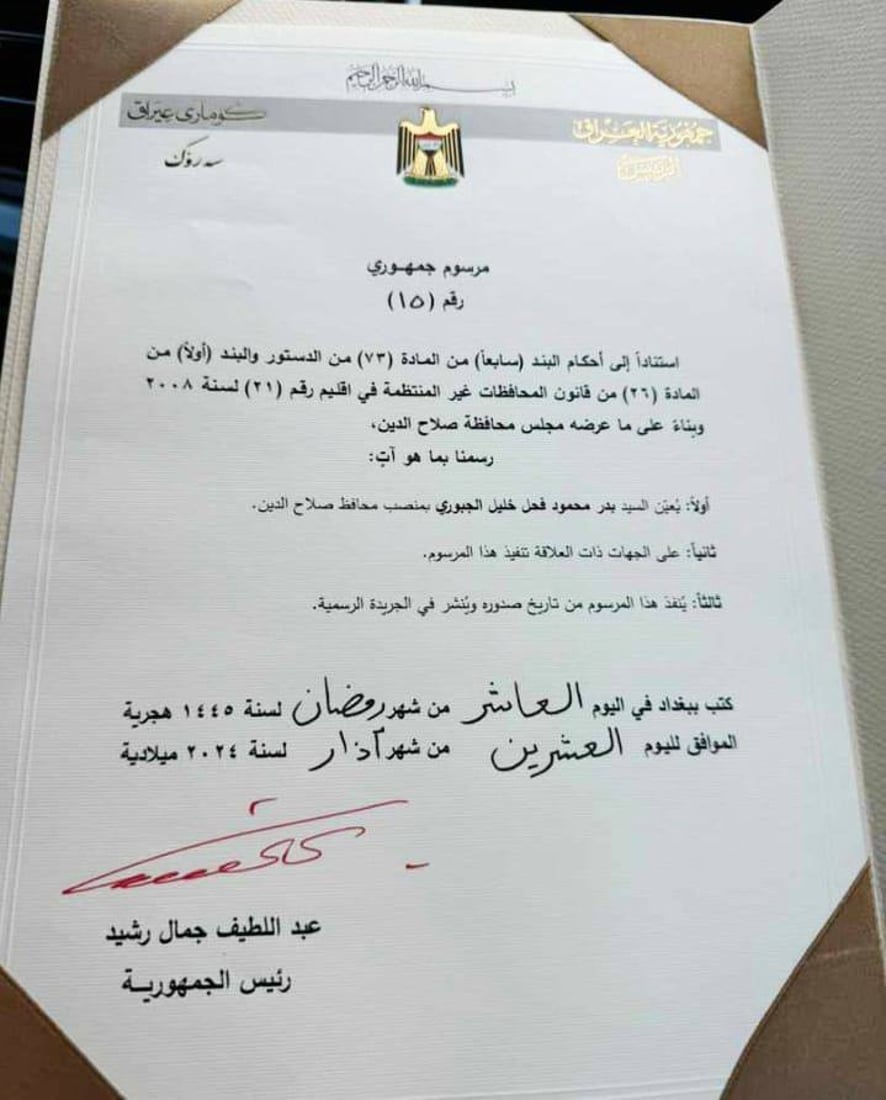 بسم الله الرحمن الرحيم
جمهورية العراق
الرئيس
كۆماری عێراق
سەرۆک
مرسوم جمهـوري
رقم (١٥)
استناداً إلى أحكام البند (سابعاً) من المادة (٧٣) من الدستور والبند (أولاً) من
المادة (٢٦) من قانون المحافظات غير المنتظمة في اقليم رقم (٢١) لسنة ٢٠٠٨
وبناءً على ما عرضه مجلس محافظة صلاح الدين،
رسمنا بما هو آتٍ:
أولاً: يُعيّن السيد بدر محمود فحل خليل الجبوري بمنصب محافظ صلاح الدين.
ثانياً: على الجهات ذات العلاقة تنفيذ هذا المرسوم.
ثالثاً: يُنفذ هذا المرسوم من تاريخ صدوره ويُنشر في الجريدة الرسمية.
كتب ببغداد في اليوم العاشر من شهر رمضان لسنة ١٤٤٥ هجرية
الموافق لليوم العشرين من شهر آذار لسنة ٢٠٢٤ ميلادية
عبد اللطيف جمال رشيد
رئيس الجمهوريـة